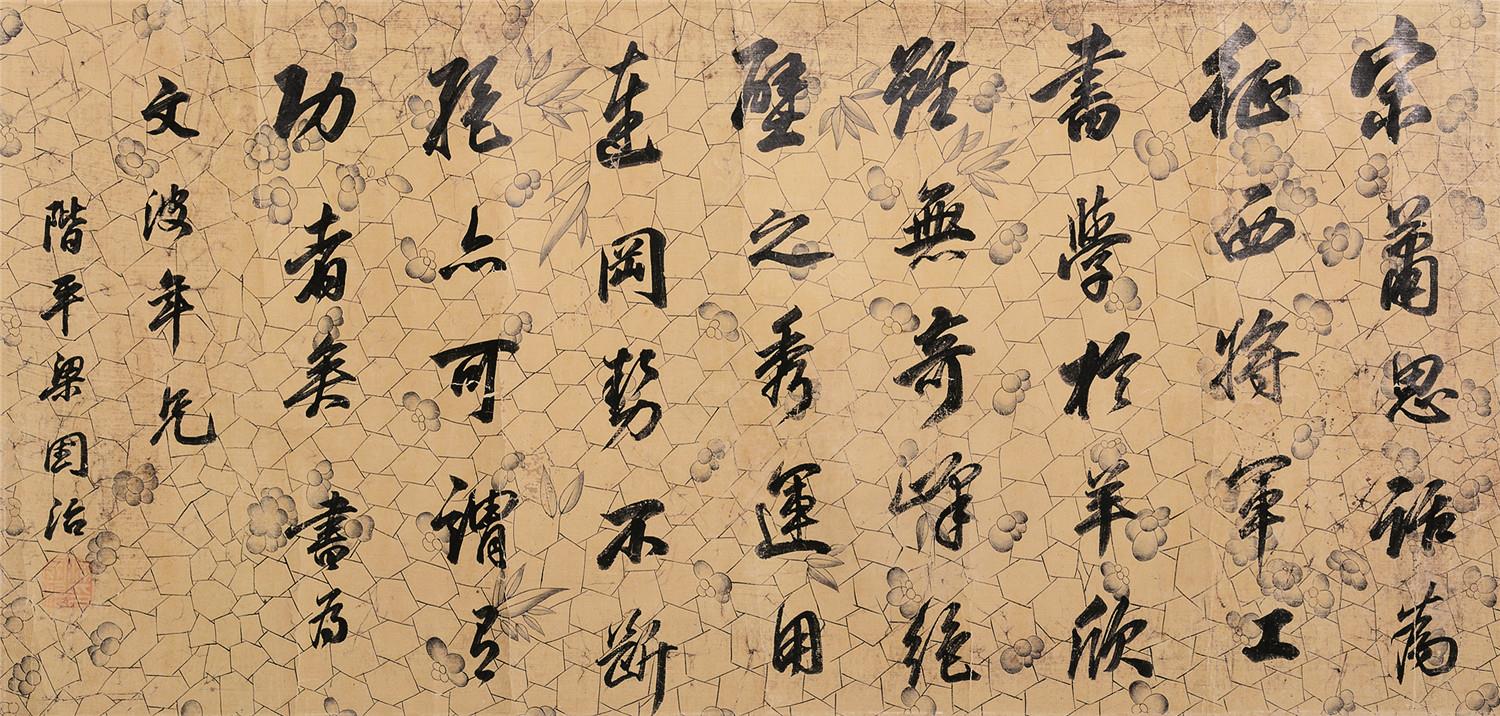 宋蕭思話為
征西將軍工
書學於羊欣
雖無奇峰絕
壁之秀運用
連岡勢不斷
絕亦可謂有
功者矣書為
文波年兄
階平梁國治